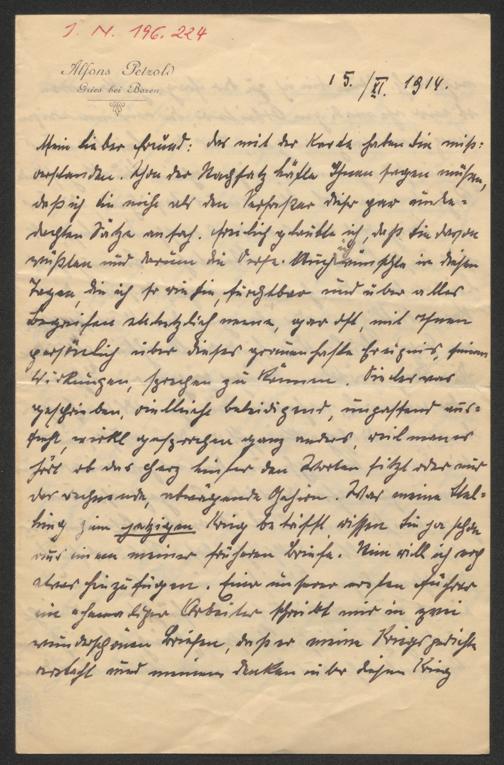 I. N. 196.224
Alfons Petzold
Gries bei Bozen
15./XI. 1914.
Mein lieber Freund: das mit der Karte haben Sie miß-
verstanden. Schon der Nachsatz hätte Ihnen sagen müssen,
daß ich Sie nicht als den Verfasser dieser paar
Sätze ansah. Freilich glaubte ich, daß Sie davon
wüßten und darum die Verse. Auch wünschte ich in diesen
Tagen, die ich so wie Sie, furchtbar und über alles
Begreifen entsetzlich nenne, gar oft, mit Ihnen
persönlich über dieses grauenhafte Ereignis, seinen
Wirkungen, sprechen zu können. Denn was
geschrieben, vielleicht beleidigend, unpassend aus-
sieht, wirkt gesprochen ganz anders, weil man es
hört ob das Herz hinter den Worten sitzt oder nur
das rechnende, abwägende Gehirn. Was meine Stel-
lung zum jetzigen Krieg betrifft wissen Sie ja schon
aus einem meiner früheren Briefe. Nun will ich noch
etwas hinzufügen. Einer unserer ersten Führer
ein ehemaliger Arbeiter schreibt mir in zwei
wunderschönen Briefen, daß er meine Kriegsgedichte
versteht und meinem Denken über diesen Krieg